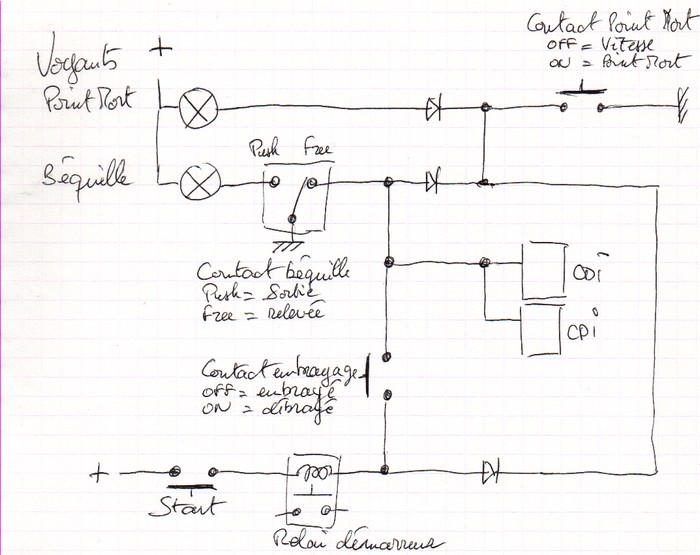 Contact Point Mort
OFF = Vitesse
ON = Point Mort
Voyants
+
Point Mort
Push Free
Béquille
Contact béquille
Push = Sortie
Free = relevée
CDi
CDi
Contact embrayage
OFF = embrayé
ON = débrayé
+
Start
Relai démarreur